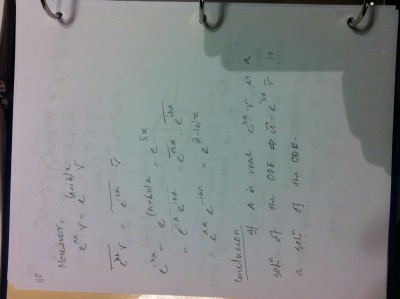 Moreover,
e^{λx} v = e^{(a+ib)x} v
\overline{e^{λx} v} = \overline{e^{λx}} \overline{v}
\overline{e^{λx}} = \overline{e^{(a+ib)x}} = e^{\overline{λ}x}
= \overline{e^{ax} e^{ibx}} = \overline{e^{ax}} \cdot \overline{e^{ibx}}
= e^{ax} e^{-ibx} = e^{(a-ib)x}
Conclusion
If A is real e^{λx} v is a
sol^n of the ODE ⇒ e^{\overline{λ}x} \overline{v} is
a sol^n of the ODE.